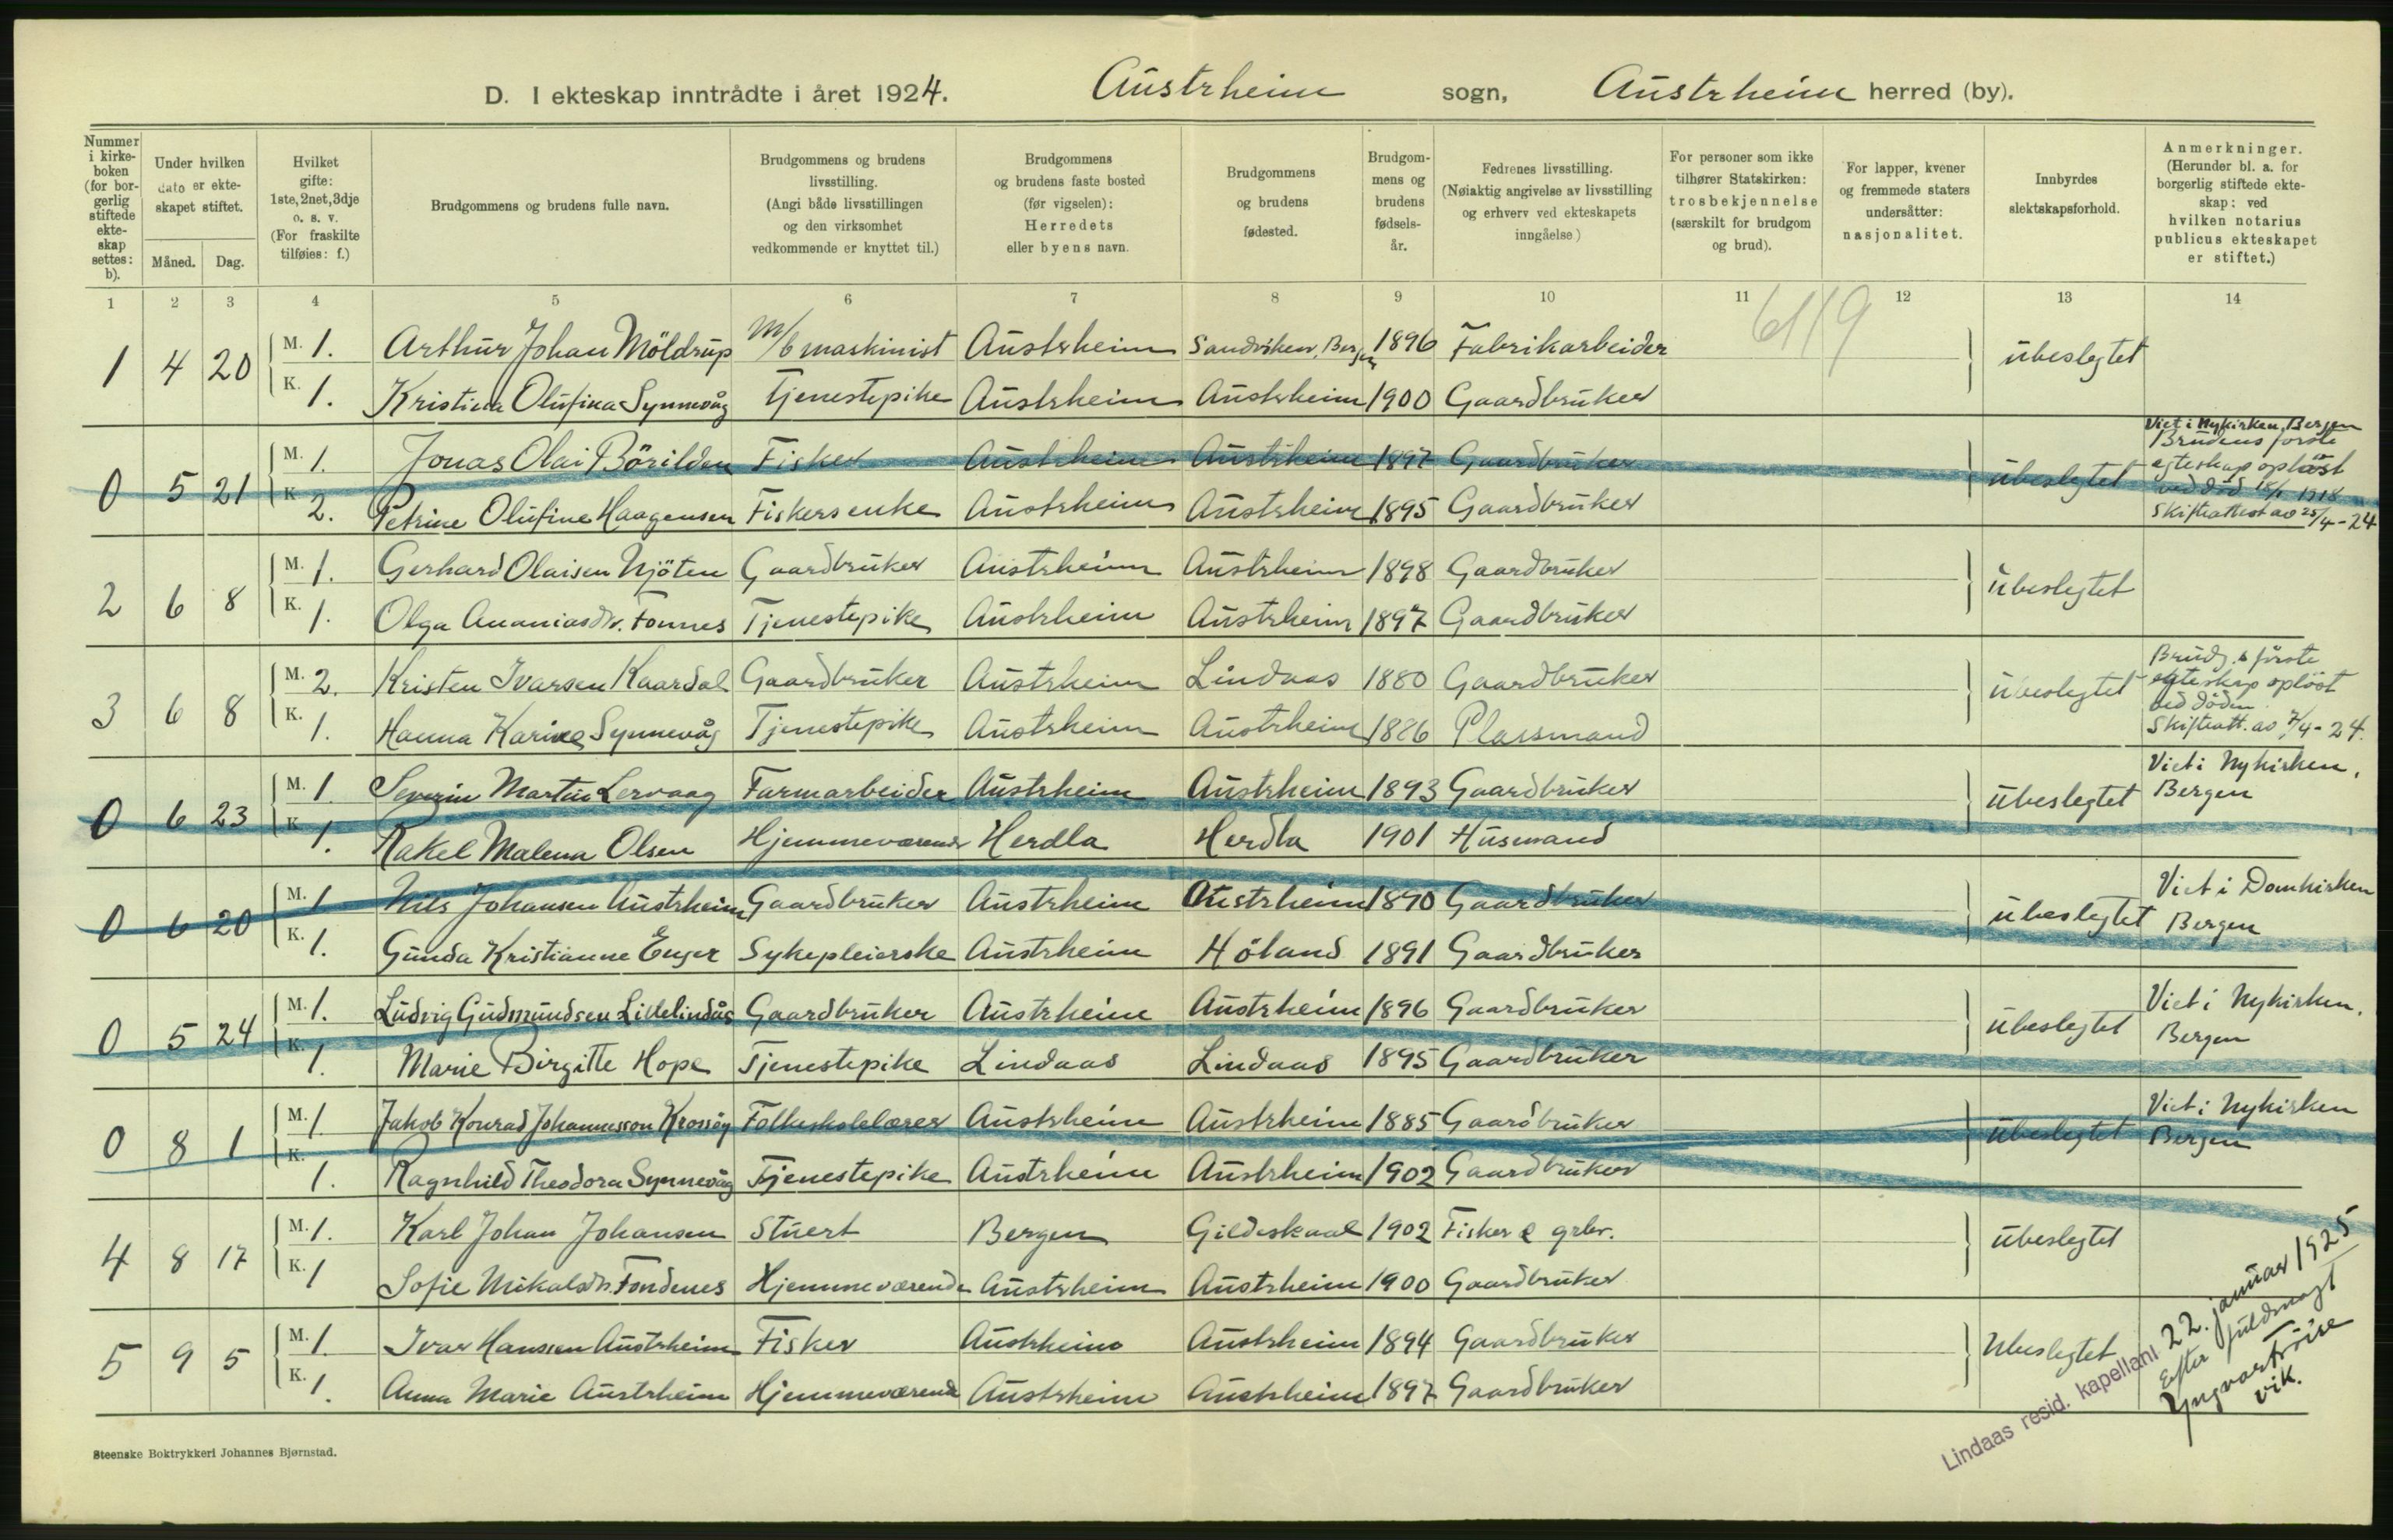 D. I ekteskap inntrådte i året 1924. Austrheim sogn, Austrheim herred (by).
Nummer i kirke-boken (for bor-gerlig stiftede ekte-skap settes: b).
Under hvilken dato er ekte-skapet stiftet.
Måned. Dag.
Hvilket gifte: 1ste, 2net, 3dje o. s. v. (For fraskilte tilføies: f.)
Brudgommens og brudens fulle navn.
Brudgommens og brudens livsstilling. (Angi både livsstillingen og den virksomhet vedkommende er knyttet til.)
Brudgommens og brudens faste bosted (før vigselen): Herredets eller byens navn.
Brudgommens og brudens fødested.
Brudgom-mens og brudens fødsels-år.
Fedrenes livsstilling. (Nøiaktig angivelse av livsstilling og erhverv ved ekteskapets inngåelse)
For personer som ikke tilhører Statskirken: trosbekjennelse (særskilt for brudgom og brud).
For lapper, kvener og fremmede staters undersåtter: nasjonalitet.
Innbyrdes slektskapsforhold.
Anmerkninger. (Herunder bl. a. for borgerlig stiftede ekte-skap: ved hvilken notarius publicus ekteskapet er stiftet.)
1 2 3 4 5 6 7 8 9 10 11 12 13 14
6119
1 4 20 M. 1. Arthur Johan Möldrup m/b maskinist Austrheim Sandviken, Bergen 1896 Fabrikarbeider ubeslegtet
K. 1. Kristina Olufina Synnevåg Tjenestepike Austrheim Austrheim 1900 Gaardbruker
0 5 21 M. 1. Jonas Olai Börilden Fisker Austrheim Austrheim 1897 Gaardbruker ubeslegtet
K. 2. Petrine Olufine Haagensen Fiskersenke Austrheim Austrheim 1895 Gaardbruker
Viet i Nykirken, Bergen
Brudens förste
egteskap oplöst
ved död 18/1 1918
Skifteattest av 25/4-24
2 6 8 M. 1. Gerhard Olaisen Njöten Gaardbruker Austrheim Austrheim 1898 Gaardbruker ubeslegtet
K. 1. Olga Ananiasdr. Fonnes Tjenestepike Austrheim Austrheim 1897 Gaardbruker
3 6 8 M. 2. Kristen Ivarsen Kaardal Gaardbruker Austrheim Lindaas 1880 Gaardbruker ubeslegtet
K. 1. Hanna Karine Synnevåg Tjenestepike Austrheim Austrheim 1886 Plassmand
Brudg.s förste
egteskap oplöst
ved döden
Skifteatt. av 7/4-24.
0 6 23 M. 1. Severin Martin Lervaag Farmarbeider Austrheim Austrheim 1893 Gaardbruker ubeslegtet
K. 1. Rakel Malena Olsen Hjemmeværende Herdla Herdla 1901 Husmand
Viet i Nykirken,
Bergen
0 6 20 M. 1 Nils Johansen Austrheim Gaardbruker Austrheim Austrheim 1890 Gaardbruker ubeslegtet
K. 1. Gunda Kristianne Enger Sykepleierske Austrheim Höland 1891 Gaardbruker
Viet i Domkirken
Bergen
0 5 24 M. 1. Ludvig Gudmundsen Lillelindås Gaardbruker Austrheim Austrheim 1896 Gaardbruker ubeslegtet
K. 1. Marie Birgitte Hope Tjenestepike Lindaas Lindaas 1895 Gaardbruker
Viet i Nykirken,
Bergen
0 8 1 M. 1 Jakob Konrad Johannesson Krossöy Folkeskolelærer Austrheim Austrheim 1885 Gaardbruker ubeslegtet
K. 1. Ragnhild Theodora Synnevåg Tjenestepike Austrheim Austrheim 1902 Gaardbruker
Viet i Nykirken
Bergen
4 8 17 M. 1. Karl Johan Johansen Stuert Bergen Gildeskaal 1902 Fisker & grbr. ubeslegtet
K. 1 Sofie Mikalsdr. Fondenes Hjemmeværende Austrheim Austrheim 1900 Gaardbruker
5 9 5 M. 1. Ivar Hanssen Austrheim Fisker Austrheim Austrheim 1894 Gaardbruker Ubeslegtet
K. 1. Anna Marie Austrheim Hjemmeværende Austrheim Austrheim 1897 Gaardbruker
Lindaas resid. kapellani 22. januar 1925
Efter fuldmagt
Yngvar Tröise
vik.
Steenske Boktrykkeri Johannes Bjørnstad.